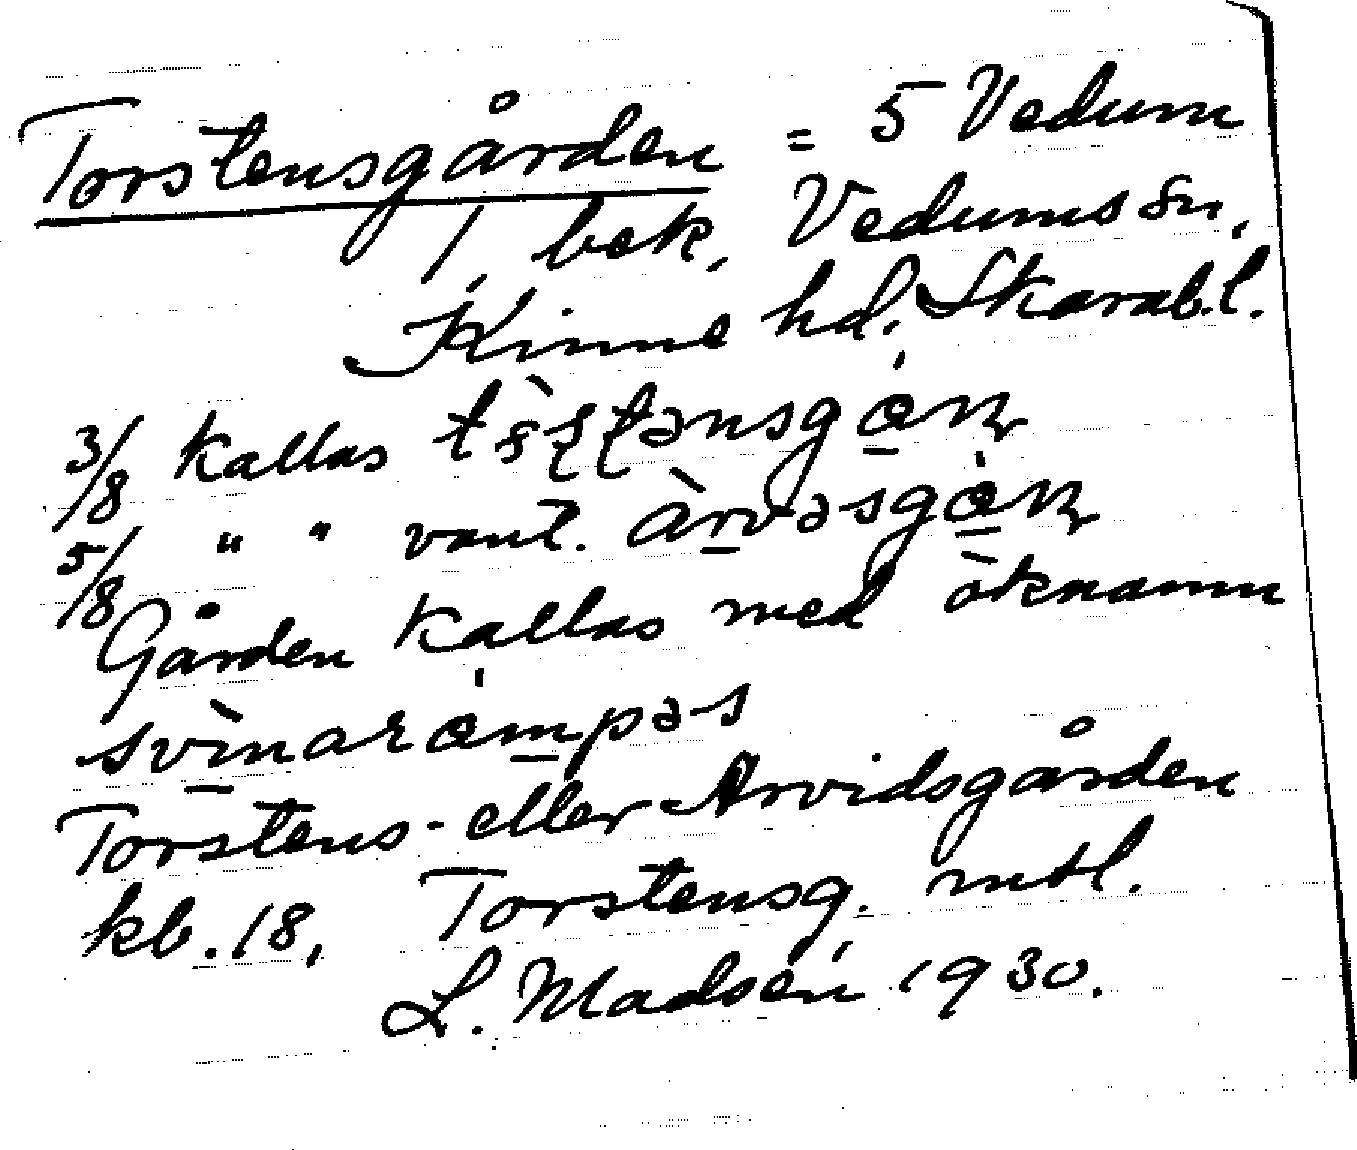 Torstensgården = 5 Vedum
1, bek, Vedums sn,
Kinne hd. Skarab.l.
3/8 kallas
5/8 " " vanl.
Gården kallas med öknamn
Torstens- eller Arvidsgården
kb. 18, Torstensg. mtl.
L. Madsén 1930.